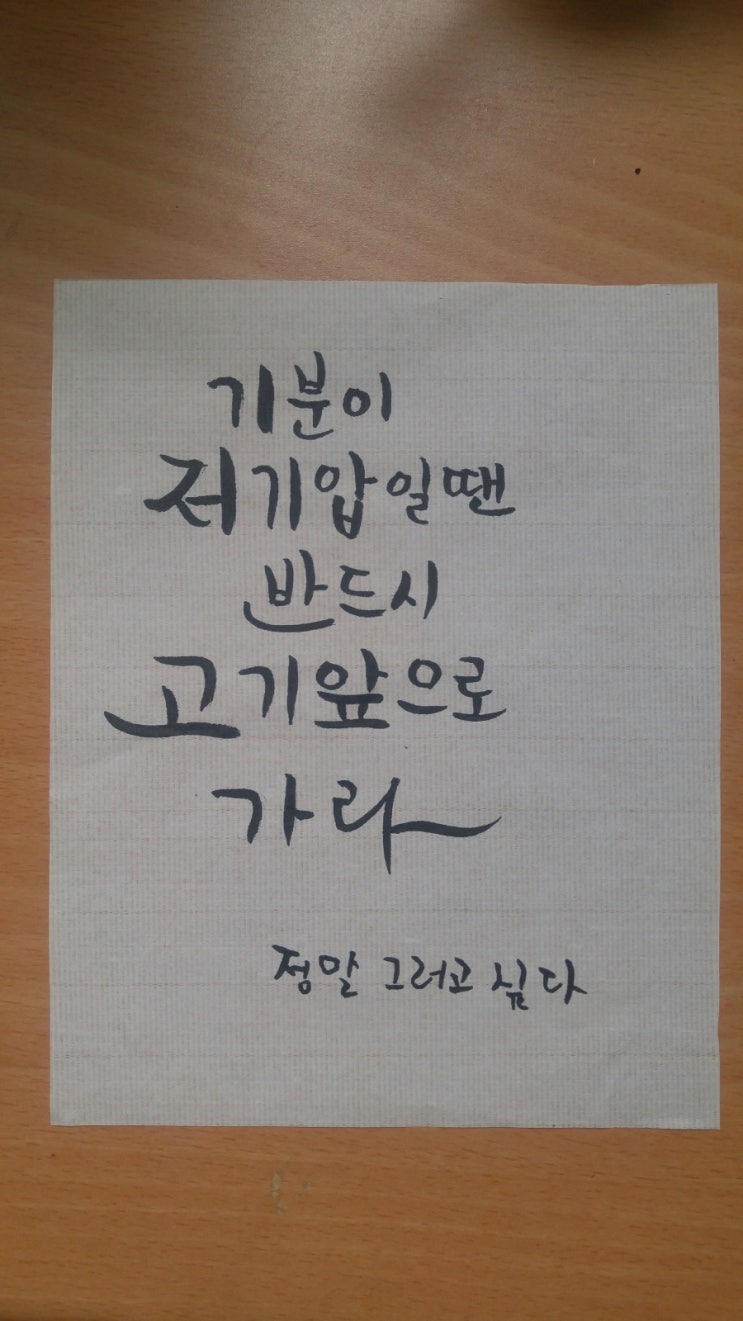 기분이
저기압일땐
반드시
고기앞으로
가라
정말 그러고 싶다